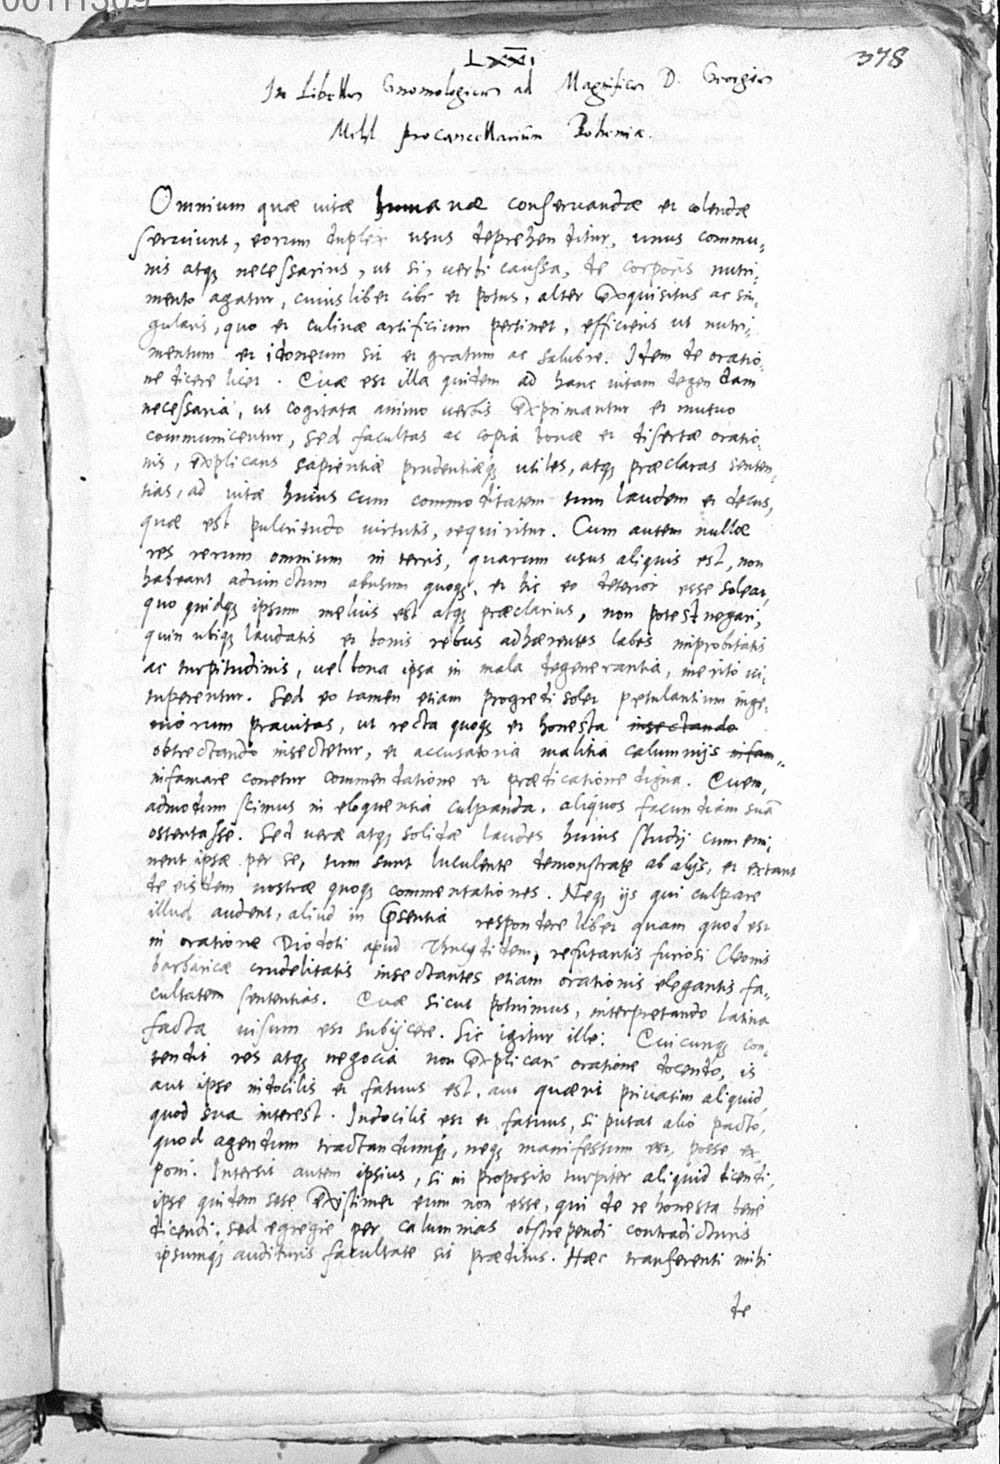 00111309
378
LXXI
In Libellos Gnomologicos ad Magnificum D. Georgium
Mehl procancellarium Bohemiæ.
Omnium quæ vitæ humanæ conservandæ et colendæ
serviunt, eorum duplex usus deprehenditur, unus commu-
nis atq; necessarius, ut si, verbi caussa, de corporis nutri-
mento agatur, cuiuslibet cibi et potus, alter exquisitus ac sin-
gularis, quo et culinæ artificium pertinet, efficiens ut nutri-
mentum et idoneum sit et gratum ac salubre. Idem de oratio-
ne dicere licet. Quæ est illa quidem ad hanc vitam degendam
necessaria, ut cogitata animo verbis exprimantur et mutuo
communicentur, sed facultas ac copia bonæ et disertæ oratio-
nis, explicans sapientiæ prudentiæq; utiles, atq; præclaras senten-
tias, ad vitæ huius cum commoditatem tum laudem et decus,
quæ est pulcritudo virtutis, requiritur. Cum autem nullæ
res rerum omnium in terris, quarum usus aliquis est, non
habeant adiunctum abusum quoq;, et hic eo deterior esse soleat,
quo quidq; ipsum melius est atq; præclarius, non potest negari,
quin ubiq; laudatis et bonis rebus adhærentes labes improbitatis
ac turpitudinis, vel bona ipsa in mala degenerantia, merito vi-
tuperentur. Sed eo tamen etiam progredi solet petulantium inge-
niorum pravitas, ut recta quoq; et honesta insectando
obtrectando insectetur, et accusatoria malitia calumnijs infam-
infamare conetur commendatione et prædicatione digna. Quem-
admodum scimus in eloquentia culpanda, aliquos facundiam suā
ostentasse. Sed veræ atq; solidæ laudes huius studij cum emi-
nent ipsæ per se, tum sunt luculente demonstratę ab alijs, et extant
de eisdem nostræ quoq; commentationes. Neq; ijs qui culpare
illud audent, aliud in p̄sentia respondere libet quam quod est
in oratione Diodoti apud Thucydidem, refutantis furiosi Cleonis
barbaricæ crudelitatis insectantes etiam orationis elegantis fa-
cultatem sententias. Quæ sicut potuimus, interpretando latina
facta visum est subijcere. Sic igitur ille: Quicunq; con-
tendit res atq; negocia non explicari oratione docendo, is
aut ipse indocilis et fatuus est, aut quærit privatim aliquid
quod sua interest. Indocilis est et fatuus, si putat alio pacto,
quod agendum tractandumq;, neq; manifestum est, posse ex-
poni. Intersit autem ipsius, si in proposito turpiter aliquid dicendi,
ipse quidem sese existimet eum non esse, qui de re honesta bene
dicendi, sed egregie per calumnias obstrependi contradicturis
ipsumq; audituris facultate sit præditus. Hæc transferenti mihi
de